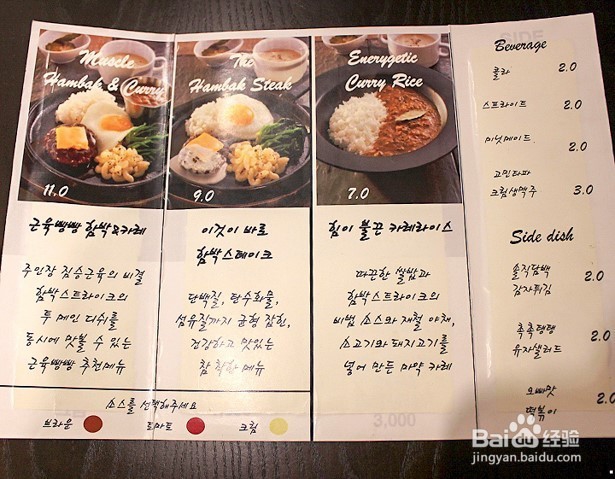 Muscle
Hambak & Curry
11.0
근육빵빵 함박&카레
주인장 짐승근육의 비결
함박스트라이크의
두 메인 디쉬를
동시에 맛볼 수 있는
근육빵빵 추천메뉴
The
Hambak Steak
9.0
이것이 바로
함박스테이크
단백질, 탄수화물,
섬유질까지 균형 잡힌,
건강하고 맛있는
참 착한 메뉴
소스를 선택해주세요
브라운
토마토
크림
Energetic
Curry Rice
7.0
힘이 불끈 카레라이스
따끈한 쌀밥과
함박스트라이크의
비법 소스와 제철 야채,
소고기와 돼지고기를
넣어 만든 마약 카레
3,000
Beverage
콜라 2.0
스프라이트 2.0
미닛메이드 2.0
고민타파
크림생맥주 3.0
Side dish
솔직담백
감자튀김 2.0
촉촉탱탱
유자샐러드 2.0
오빠맛
떡볶이 2.0
Baidu经验
jingyan.baidu.com